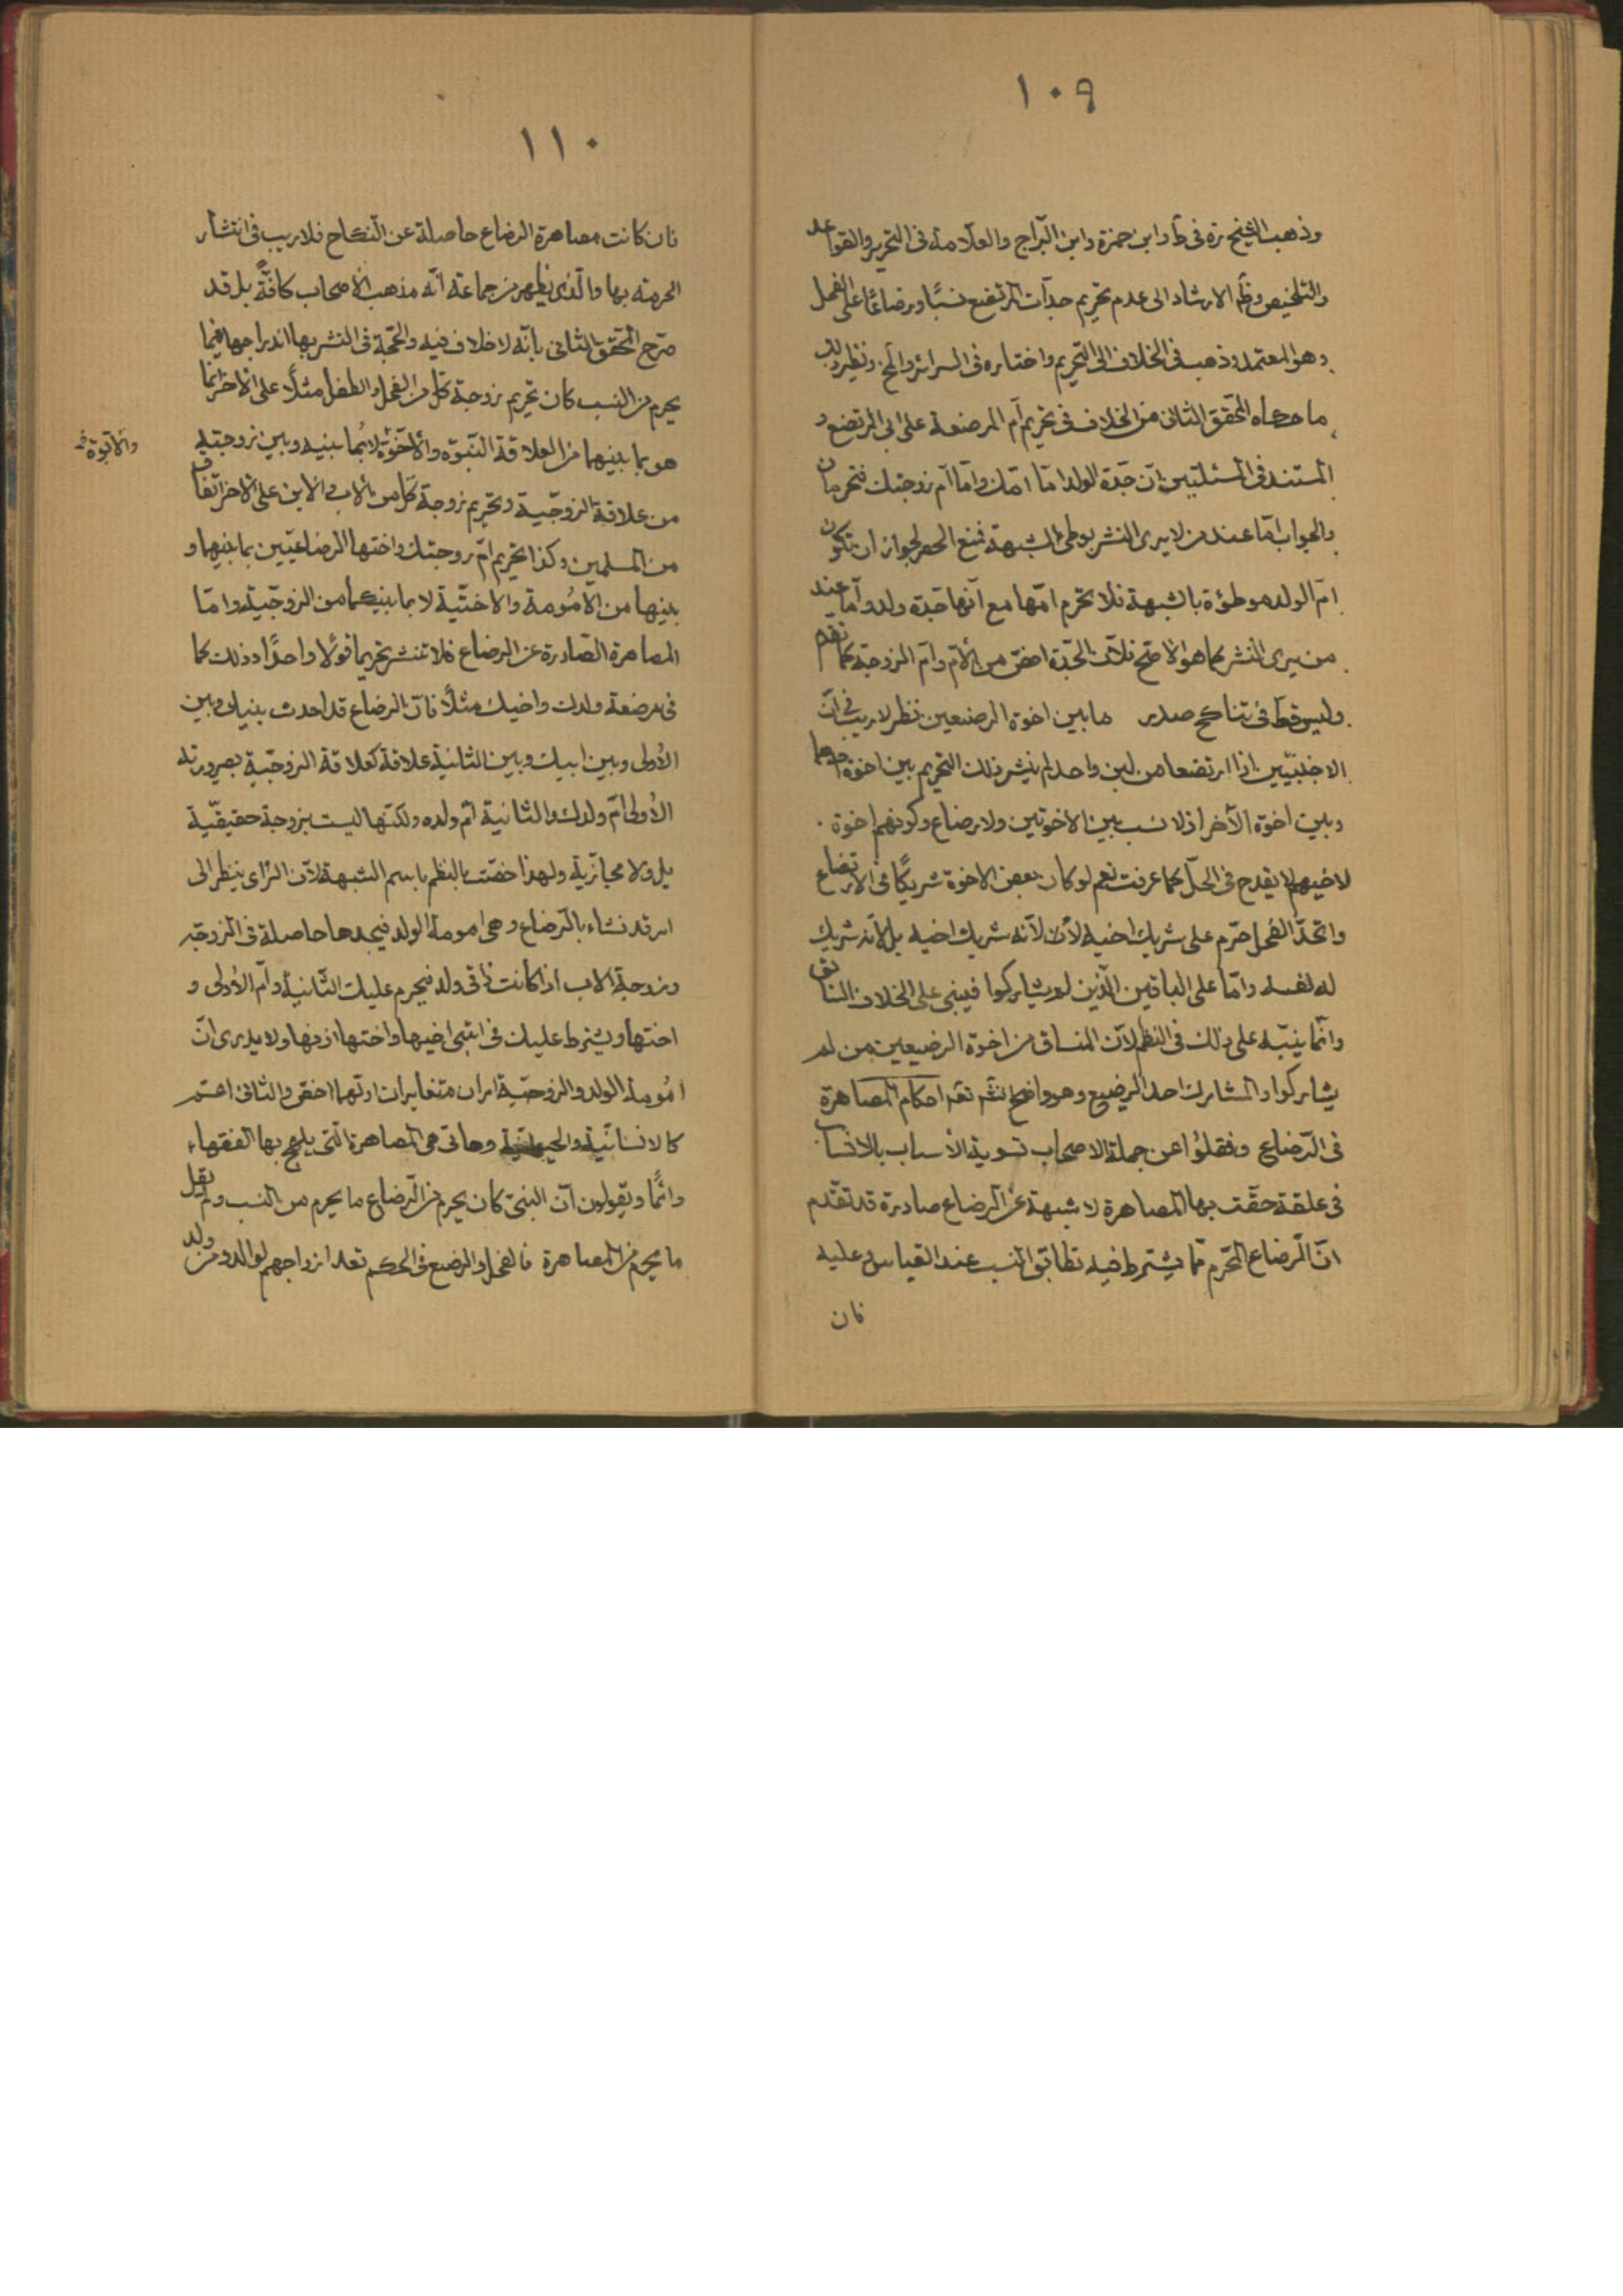 ١٠٩
وذهب الشيخ ره في ط وابن حمزة وابن البراج والعلامة في التحرير والقواعد
والتلخيص وظ الارشاد الى عدم تحريم جدات المرتضع نسبًا ورضاعًا على الفحل
وهو المعتمد وذهب في الخلاف الى التحريم واختاره في السرائر والمخ ونظير ذلك
ما حكاه المحقق الثاني من الخلاف في تحريم أم المرضعة على ابي المرتضع و
المستند في المسئلتين ان جدة الولد امّا امّك وامّا أم زوجتك فتحرمان
والجواب امّا عند من لا يرى النشر بوطي الشبهة فمنع الحصر لجواز ان تكون
ام الولد موطؤة بالشبهة فلا تحرم امّها مع أنها جدة ولد وأما عند
من يرى النشر كما هو الاصح فلان الجدّة اخص من الأم وأم الزوجة كما تقدم
وليس قط في تناكح صدر ما بين اخوة الرضيعين نظر لا ريب في أن
الاجنبيّين اذا ارتضعا من لبن واحد لم ينشر ذلك التحريم بين اخوة احدهما
وبين اخوة الآخر اذ لا نسب بين الاخوتين ولا رضاع وكونهم اخوة
لاخيهم لا يقدح في الحل كما عرفت نعم لو كان بعض الاخوة شريكًا في الارتضاع
واتحد الفحل حرّم على شريك اخيه لا لأنه شريك اخيه بل لأنه شريك
له لنفسه وامّا على الباقين الذين لم يشاركوا فيبنى على الخلاف السابق
وانما ينبّه على ذلك في النظم لان المنساق من اخوة الرضيعين من لم
يشاركوا والمشارك احد الرضيع وهو واضح نشر تقم احكام المصاهرة
في الرّضاع ونقلوا عن جملة الاصحاب تسوية الأسباب بالانساب
في علقة حقّت بها المصاهرة لا شبهة عن الرضاع صادرة قد تقدّم
انّ الرضاع المحرم ممّا يشترط فيه تطابق النسب عند القياس وعليه
فان
١١٠
فان كانت مصاهرة الرضاع حاصلة عن النكاح فلا ريب في انتشار
الحرمة بها والذي يظهر من جماعة انّه مذهب الاصحاب كافةً بل قد
صرّح المحقق الثاني بأنّه لا خلاف فيه والحجّة في النشر بها اندراجها فيما
يحرم من النسب كان تحريم زوجة كل من الفحل والطفل مثلًا على الاخر انما
هو بما بينهما من العلاقة البنوّه والأخوّة لا بما بينه وبين زوجته
والأبوّة
من علاقة الزوجّية وتحريم زوجة كل من الاب والابن على الاخر اتفاق
من المسلمين وكذا تحريم ام زوجتك واختها الرضاعيّتين بما بينها و
بينها من الأمومة والاختيّة لا بما بينكما من الزوجّية وامّا
المصاهرة الصّادرة عن الرضاع فلا تنشر تحريما قولًا واحدًا وذلك كما
في مرضعة ولدك واخيك مثلًا فان الرضاع قد احدث بينك وبين
الأولى وبين ابيك وبين الثانية علاقة كعلاقة الزوجّية بصيرورته
الأولى أم ولدك والثانية أم ولده ولكنّها ليست بزوجة حقيقّية
بل ولا مجازّية ولهذا خصّت بالنظم باسم الشبهة لأن الرّاي ينظر الى
امر قد نشاء بالرّضاع وهي امومة الولد فيجدها حاصلة في الزوجة
وزوجة الاب اذا كانت ذاتي ولد فيحرم عليك الثانية وأم الأولى و
اختها ويشترط عليك في ابنتي اخيها واختها اذنها ولا يدرى انّ
امومة الولد والزوجّية امران متغايران اولهما اخص والثاني اعم
كالانسانّية والحيوانية وهاتي هي المصاهرة التي يلهج بها الفقهاء
دائمًا ويقولون انّ النبيّ كان يحرم من الرّضاع ما يحرم من النسب ولم يقل
ما يحرم من المصاهرة فالفحل والرضيع في الحكم تعدا ازواجهم لوالد ومن ولد